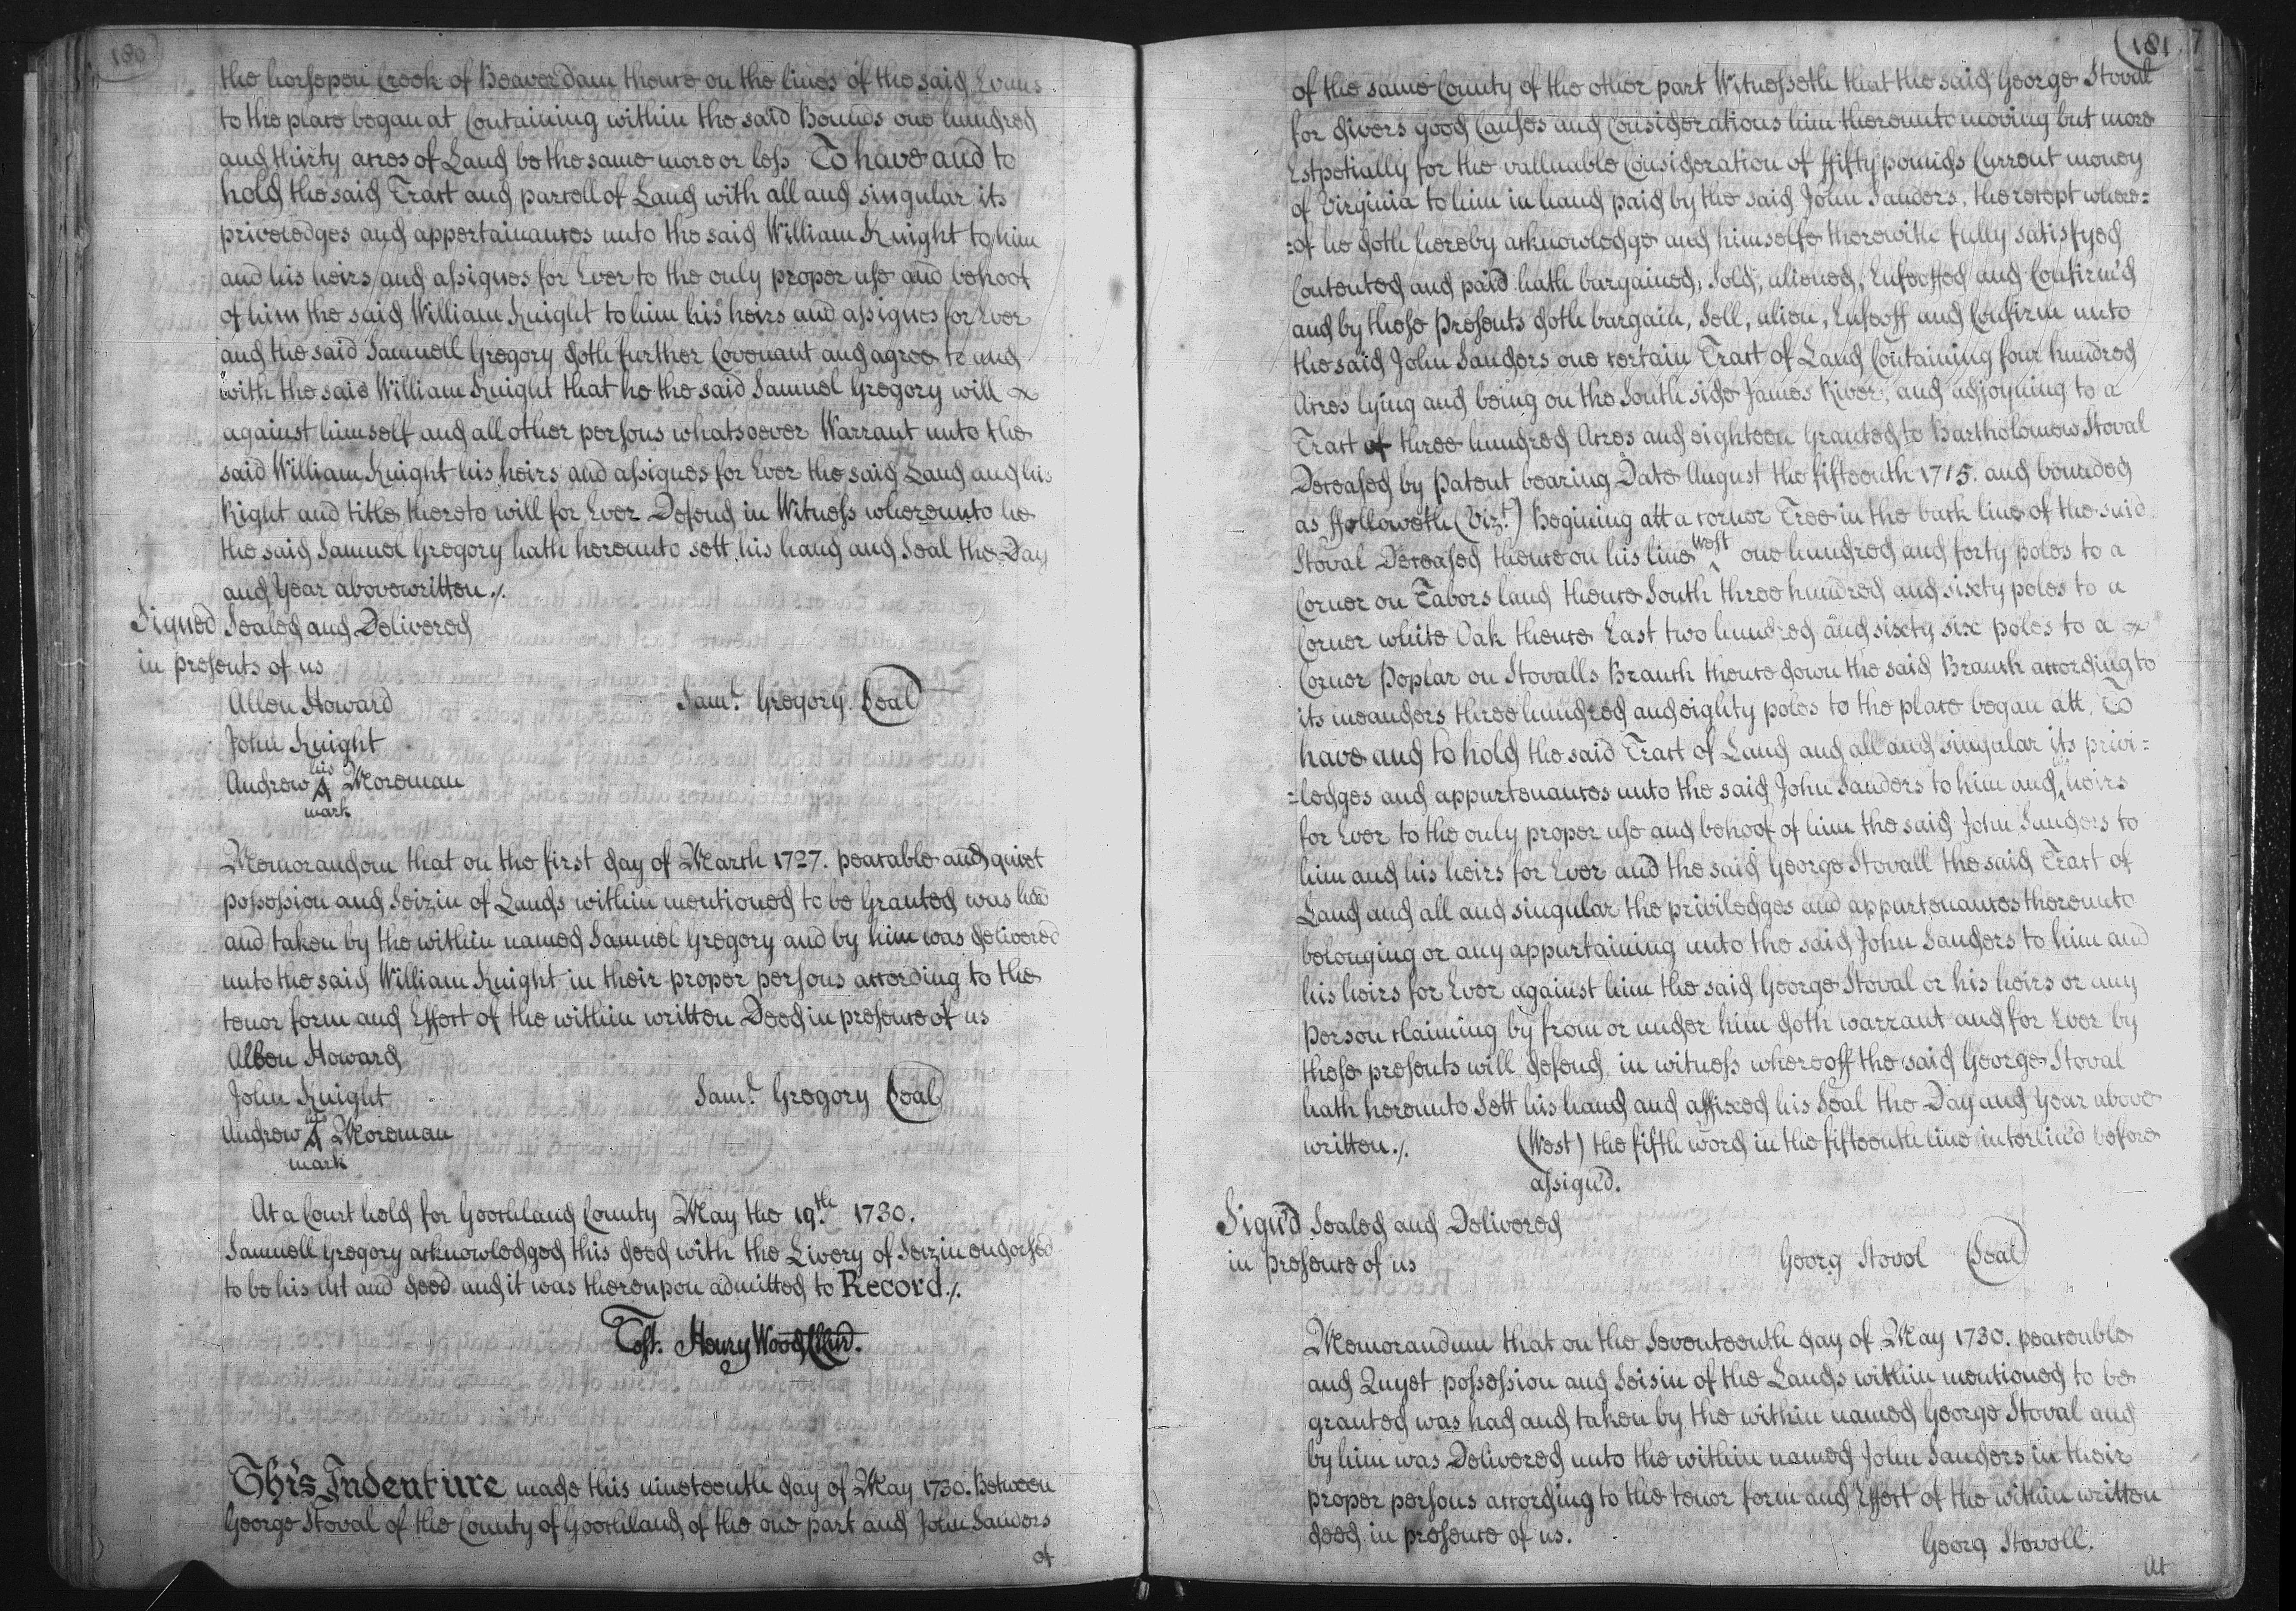 180
the horsepen Creek of Beaverdam thence on the lines of the said Evans
to the place began at Containing within the said Bounds one hundred
and thirty acres of Land be the same more or less To have and to
hold the said Tract and parcell of Land with all and singular its
priveledges and appertainances unto the said William Knight to him
and his heirs and assignes for Ever to the only proper use and behoof
of him the said William Knight to him his heirs and assignes for Ever
and the said Samuell Gregory doth further Covenant and agree to and
with the said William Knight that he the said Samuel Gregory will
against himself and all other persons whatsoever Warrant unto the
said William Knight his heirs and assignes for Ever the said Land and his
Right and title thereto will for Ever Defend in Witness whereunto he
the said Samuel Gregory hath hereunto sett his hand and Seal the Day
and Year abovewritten ./.
Signed Sealed and Delivered
in presents of us
Allen Howard
Sam.ll Gregory Seal
John Knight
his
Andrew A Moreman
mark
Memorandom that on the first day of March 1727. peacable and quiet
possession and Seizin of Lands within mentioned to be Granted was had
and taken by the within named Samuel Gregory and by him was delivered
unto the said William Knight in their proper persons according to the
tenor form and Effect of the within written Deed in presence of us
Allen Howard
John Knight
Sam.ll Gregory Seal
his
Andrew A Moreman
mark
At a Court held for Goochland County May the 19.th 1730.
Samuell Gregory acknowledged this deed with the Livery of Seizin endorsed
to be his Act and deed and it was thereupon admitted to Record ./.
Test. Henry Wood
This Indenture made this nineteenth day of May 1730. Between
George Stoval of the County of Goochland of the one part and John Sanders
of
181
of the same County of the other part Witnesseth that the said George Stoval
for divers good Causes and Considerations him thereunto moving but more
Estpetially for the valluable Consideration of ffifty pounds Current money
of Virginia to him in hand paid by the said John Sanders, the recept where=
=of he doth hereby acknowledge and himselfe therewith fully satisfyed
Contented and paid hath bargained, Sold, aliened, Enfeoffed and Confirm'd
and by these Presents doth bargain, Sell, alien, Enfeoff and Confirm unto
the said John Sanders one certain Tract of Land Containing four hundred
Acres lying and being on the South side James River, and adjoyning to a
Tract of three hundred Acres and eighteen Granted to Bartholomew Stoval
Deceased by Patent bearing Date August the fifteenth 1715. and bounded
as ffolloweth (Viz.t) Begining att a corner Tree in the back line of the said
Stoval Deceased thence on his line West one hundred and forty poles to a
Corner on Tabors land thence South three hundred and sixty poles to a
Corner white Oak thence East two hundred and sixty six poles to a
Corner Poplar on Stovalls Branch thence down the said Branch according to
its meanders three hundred and eighty poles to the place began att. To
have and to hold the said Tract of Land and all and singular its privi=
=ledges and appurtenances unto the said John Sanders to him and heirs
for Ever to the only proper use and behoof of him the said John Sanders to
him and his heirs for Ever and the said George Stovall the said Tract of
Land and all and singular the priviledges and appurtenances thereunto
belonging or any appurtaining unto the said John Sanders to him and
his heirs for Ever against him the said George Stoval or his heirs or any
Person claiming by from or under him doth warrant and for Ever by
these presents will defend in witness whereoff the said George Stoval
hath hereunto Sett his hand and affixed his Seal the Day and Year above
written ./. (West) the fifth word in the fifteenth line interlin'd before
assign'd.
Sign'd Sealed and Delivered
in presence of us
Georg Stovol Seal
Memorandum that on the Seventeenth day of May 1730. peaceable
and Quyet possession and Seisin of the Lands within mentioned to be
granted was had and taken by the within named George Stoval and
by him was Delivered unto the within named John Sanders in their
proper persons according to the tenor form and Effect of the within written
deed in presence of us.
Georg Stovoll.
At